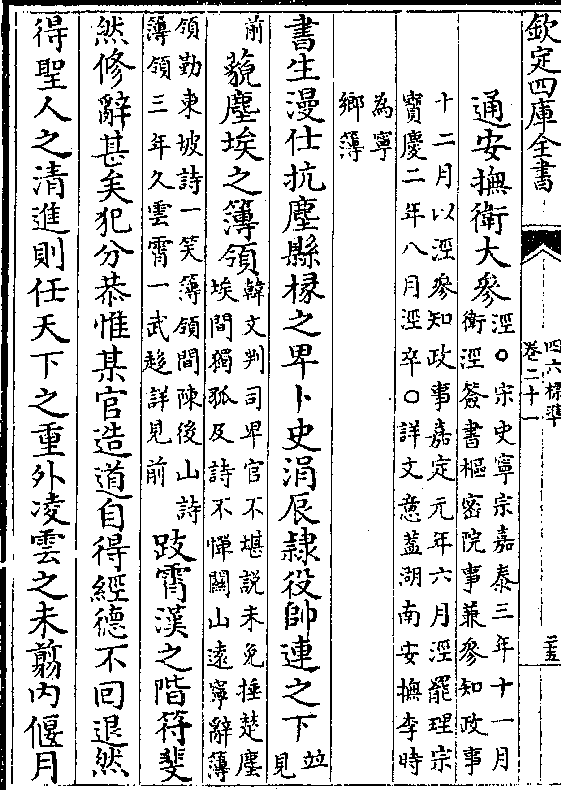 欽定四庫全書
四六標準
卷二十一
二五
通安撫衛大參
涇○宋史寧宗嘉泰三年十一月
衛涇簽書樞密院事兼參知政事
十二月以涇參知政事嘉定元年六月涇罷理宗
寶慶二年八月涇卒○詳文意葢湖南安撫李時
為寧
鄉簿
書生漫仕抗塵縣椽之卑卜史涓辰隷役帥連之下
並
見
前
藐塵埃之簿領
韓文判司卑官不堪説未免捶楚塵
埃間獨孤及詩不憚關山遠寧辭簿
領勤東坡詩一笑簿領間陳後山詩
簿領三年久雲霄一武趍詳見前
跂霄漢之階符斐
然修辭甚矣犯分恭惟某官造道自得經德不囘退然
得聖人之清進則任天下之重外凌雲之未翦内偃月